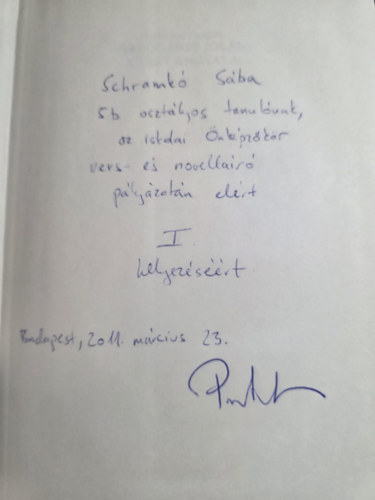 Schramkó Sába
5b osztályos tanulónak,
az iskolai Önképzőkör
vers- és novellaíró
pályázatán elért
I.
helyezéséért
Budapest, 2011. március 23.